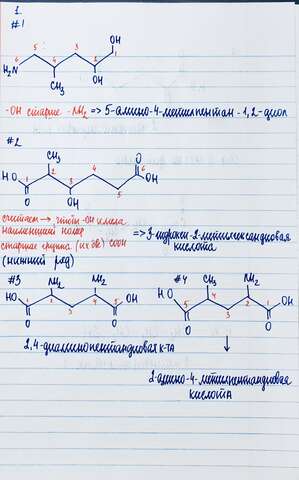 1.
#1
OH
5
4
2
1
H₂N
6
3
CH₃
OH
-OH старше -NH₂ => 5-амино-4-метилпентан-1,2-диол
#2
CH₃
O
4
6
HO
1
2
3
OH
5
O
OH
считаем → чтобы -OH имела
наименьший номер => 3-гидрокси-2-метилгександиовая
старшая группа (их две) COOH кислота
(нижний ряд)
#3 NH₂ NH₂ #4 CH₃ NH₂
HO 1 2 3 4 5 OH HO 5 4 3 2 1 OH
O O O O
2,4-диаминопентандиовая к-та
2-амино-4-метилпентандиовая
кислота